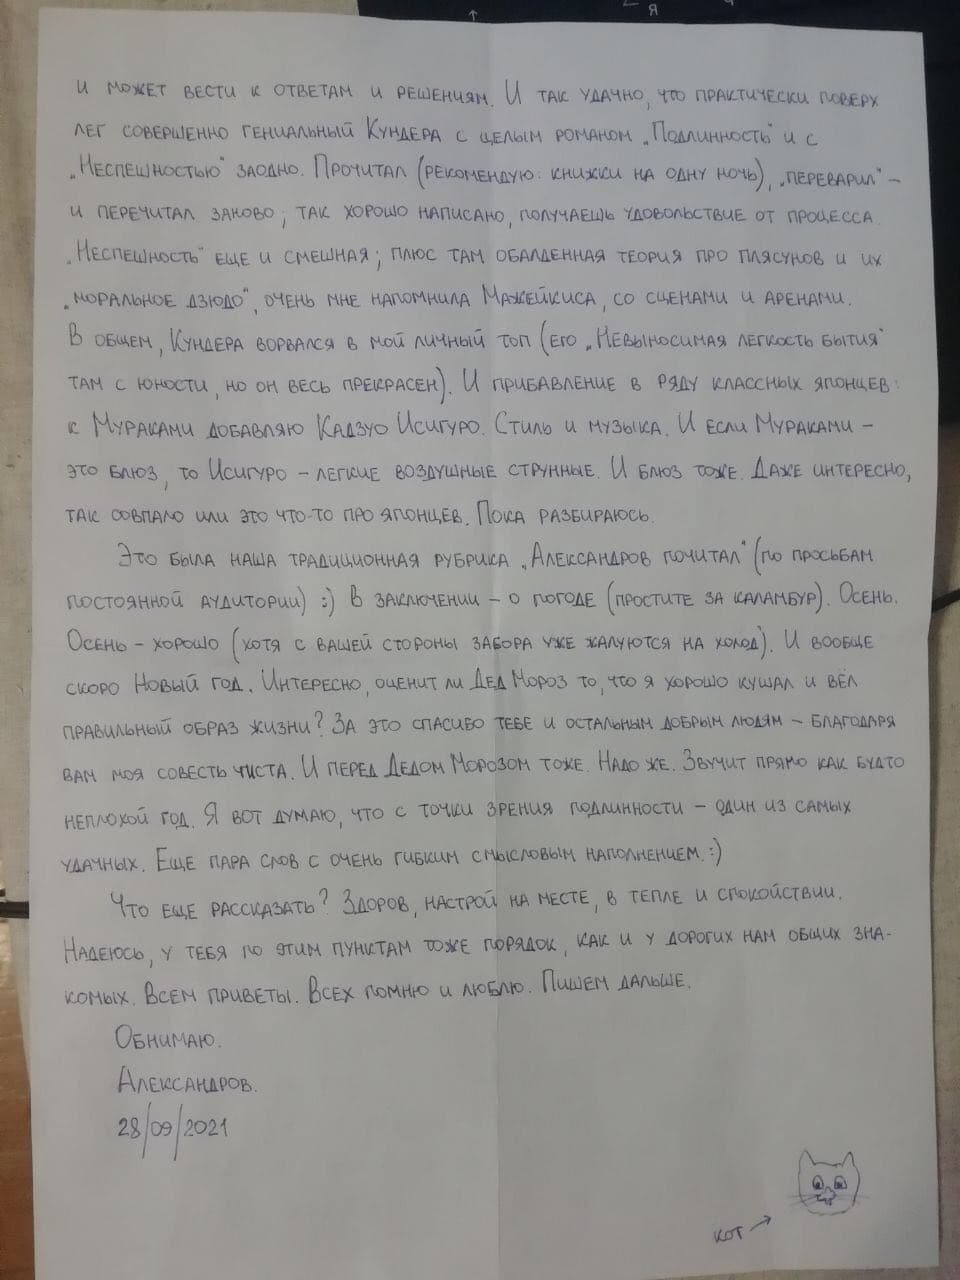 и может вести к ответам и решениям. И так удачно, что практически поверх
лег совершенно гениальный Кундера с целым романом „Подлинность“ и с
„Неспешностью“ заодно. Прочитал (рекомендую: книжки на одну ночь), „переварил“ –
и перечитал заново; так хорошо написано, получаешь удовольствие от процесса.
„Неспешность“ еще и смешная; плюс там обалденная теория про плясунов и их
„моральное дзюдо“, очень мне напомнила Мажейкиса, со сценами и аренами.
В общем, Кундера ворвался в мой личный топ (его „Невыносимая легкость бытия“
там с юности, но он весь прекрасен). И прибавление в ряду классных японцев:
к Мураками добавляю Кадзуо Исигуро. Стиль и музыка. И если Мураками –
это блюз, то Исигуро – легкие воздушные струнные. И блюз тоже. Даже интересно,
так совпало или это что-то про японцев. Пока разбираюсь.
Это была наша традиционная рубрика „Александров почитал“ (по просьбам
постоянной аудитории) :) В заключении – о погоде (простите за каламбур). Осень.
Осень – хорошо (хотя с вашей стороны забора уже жалуются на холод). И вообще
скоро Новый год. Интересно, оценит ли Дед Мороз то, что я хорошо кушал и вёл
правильный образ жизни? За это спасибо тебе и остальным добрым людям – благодаря
вам моя совесть чиста. И перед Дедом Морозом тоже. Надо же. Звучит прямо как будто
неплохой год. Я вот думаю, что с точки зрения подлинности – один из самых
удачных. Еще пара слов с очень гибким смысловым наполнением. :)
Что еще рассказать? Здоров, настрой на месте, в тепле и спокойствии.
Надеюсь, у тебя по этим пунктам тоже порядок, как и у дорогих нам общих зна-
комых. Всем приветы. Всех помню и люблю. Пишем дальше.
Обнимаю.
Александров.
28/09/2021
кот →